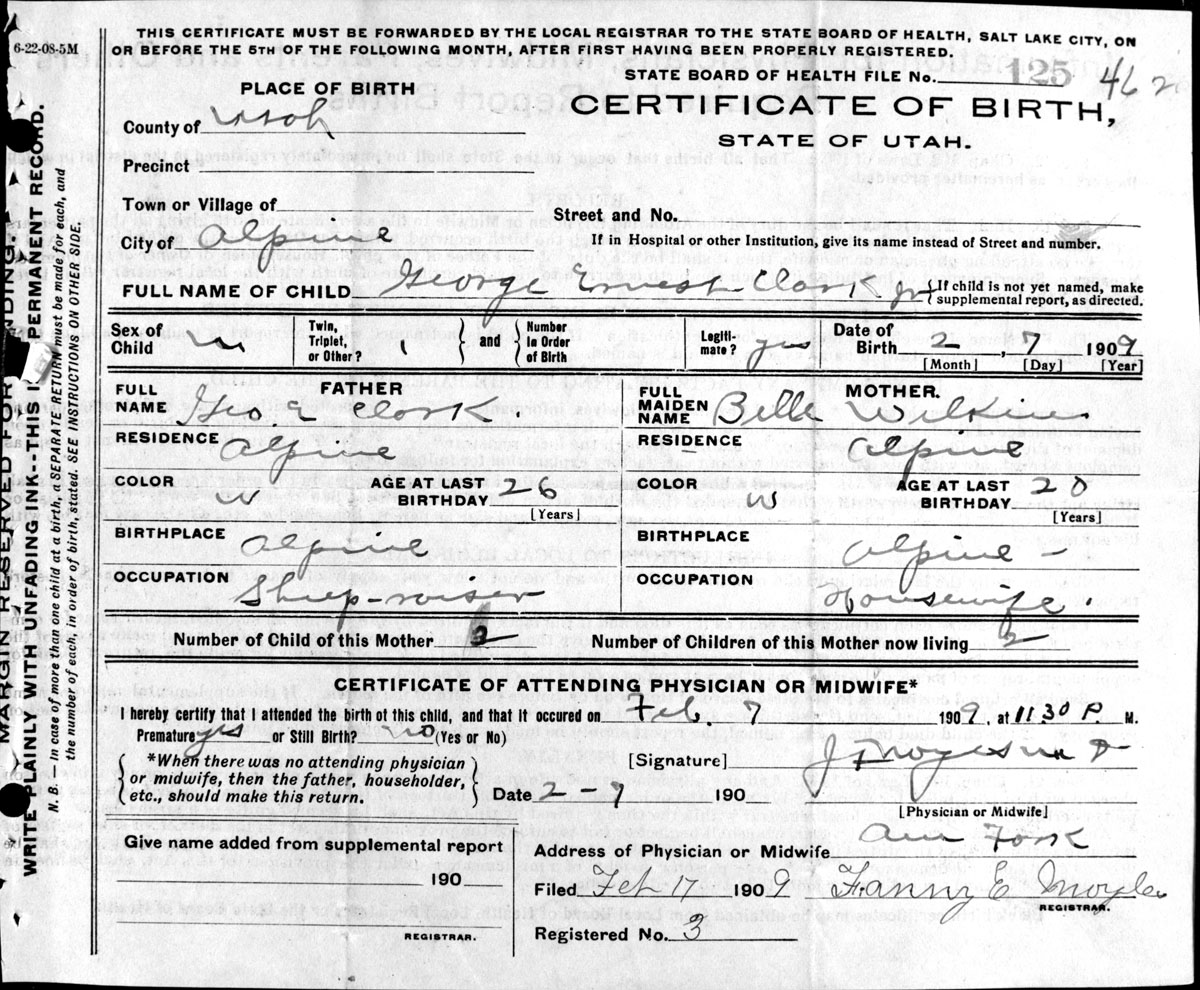 6-22-08-5M
THIS CERTIFICATE MUST BE FORWARDED BY THE LOCAL REGISTRAR TO THE STATE BOARD OF HEALTH, SALT LAKE CITY, ON
OR BEFORE THE 5TH OF THE FOLLOWING MONTH, AFTER FIRST HAVING BEEN PROPERLY REGISTERED.
STATE BOARD OF HEALTH FILE No. 125 462
PLACE OF BIRTH
CERTIFICATE OF BIRTH,
STATE OF UTAH.
County of Utah
Precinct
Town or Village of
Street and No.
City of Alpine
If in Hospital or other Institution, give its name instead of Street and number.
FULL NAME OF CHILD George Ernest Clark Jr
If child is not yet named, make
supplemental report, as directed.
Sex of Child m
Twin, Triplet, or Other? 1
and
Number in Order of Birth
Legitimate? yes
Date of Birth 2, 7 1909
[Month] [Day] [Year]
FATHER
FULL NAME Geo E Clark
RESIDENCE Alpine
COLOR W AGE AT LAST BIRTHDAY 26
[Years]
BIRTHPLACE Alpine
OCCUPATION Sheep-raiser
MOTHER.
FULL MAIDEN NAME Belle
RESIDENCE Alpine
COLOR W AGE AT LAST BIRTHDAY 20
[Years]
BIRTHPLACE Alpine -
OCCUPATION Housewife.
Number of Child of this Mother 2 Number of Children of this Mother now living 2
CERTIFICATE OF ATTENDING PHYSICIAN OR MIDWIFE*
I hereby certify that I attended the birth of this child, and that it occured on Feb. 7 1909, at 11 30 P. M.
Premature yes or Still Birth? no (Yes or No)
*When there was no attending physician
or midwife, then the father, householder,
etc., should make this return.
[Signature]
Date 2-7 190
[Physician or Midwife]
Give name added from supplemental report
190
REGISTRAR.
Address of Physician or Midwife Am Fork
Filed Feb 17 1909 Fanny E
REGISTRAR.
Registered No. 3
MARGIN RESERVED FOR BINDING.
WRITE PLAINLY WITH UNFADING INK--THIS IS PERMANENT RECORD.
N. B.—In case of more than one child at a birth, a SEPARATE RETURN must be made for each, and
the number of each, in order of birth, stated. SEE INSTRUCTIONS ON OTHER SIDE.